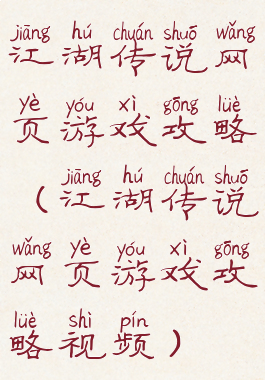 jiāng hú chuán shuō wǎng
江湖传说网
yè yóu xì gōng lüè
页游戏攻略
jiāng hú chuán shuō
（江湖传说
wǎng yè yóu xì gōng
网页游戏攻
lüè shì pín
略视频）